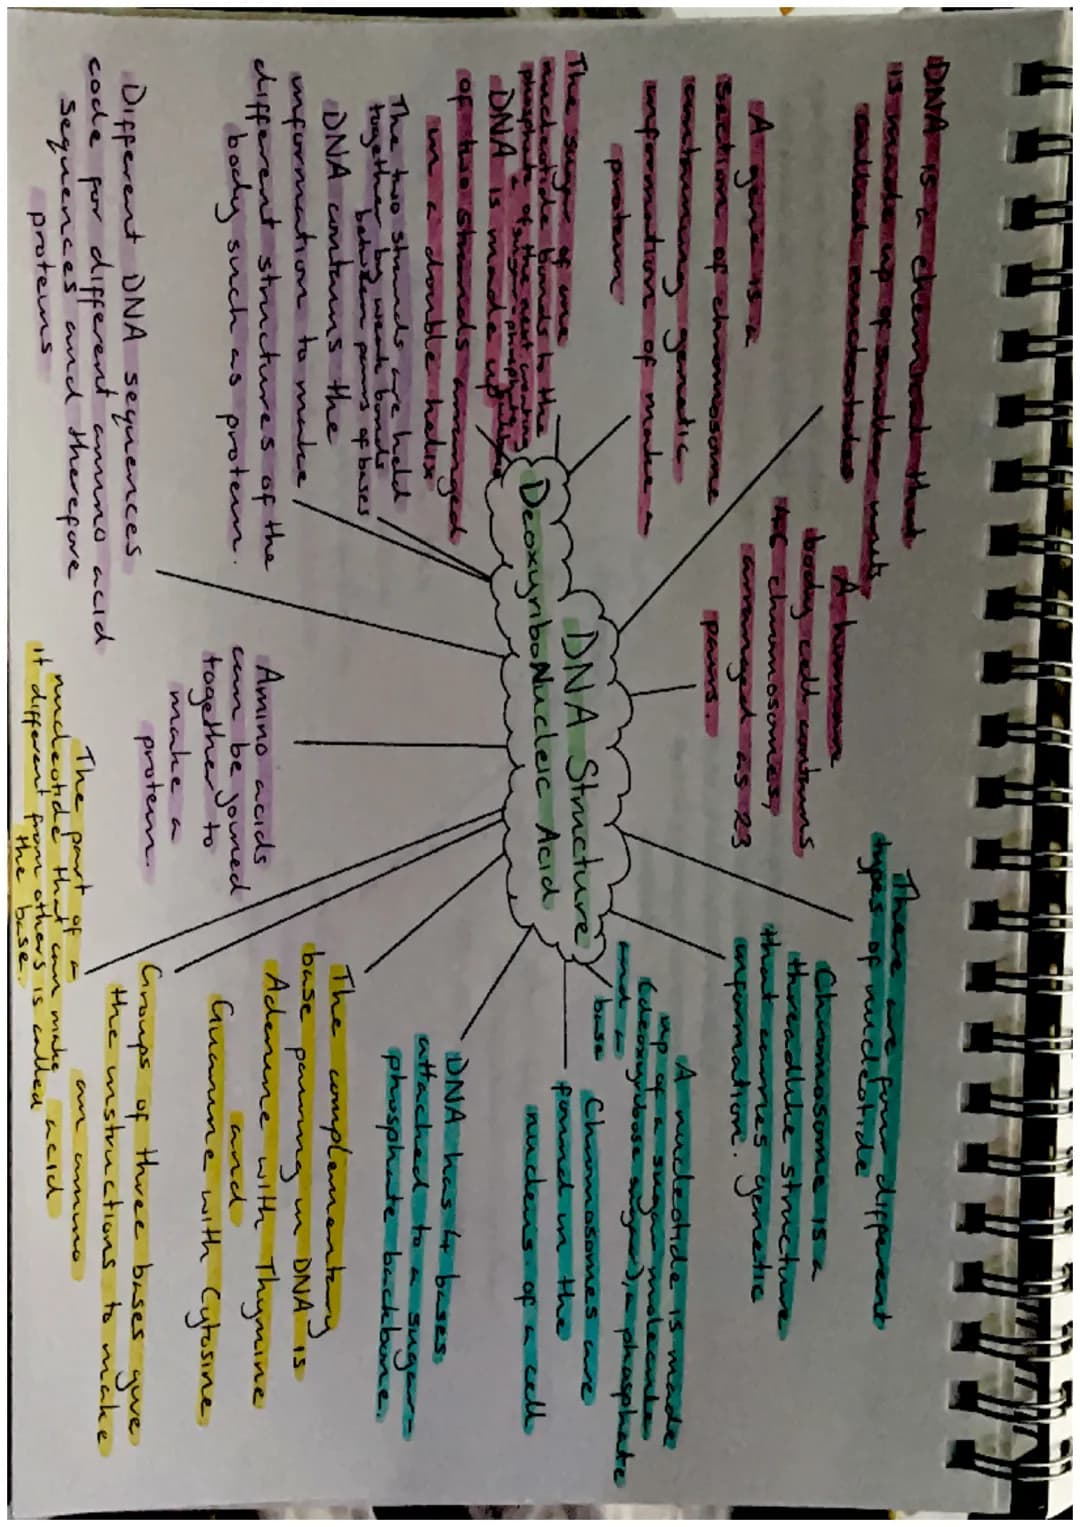 DNA Structure
Deoxyribo Nucleic Acid
DNA is a chemical that
is made up of smaller units
called nucleotides
A human
body cell contains
46 chromosomes,
arranged as 23
pairs.
There are four different
types of nucleotide
Chromosome is a
threadlike structure
that carries genetic
information.
A nucleotide is made
up of a sugar molecule
(deoxyribose sugar), a phosphate
and a
base
Chromosomes are
found in the
nucleus of a cell
DNA has 4 bases,
attached to a sugar-
phosphate backbone.
The complementary
base pairing in DNA is
Adenine with Thymine
and
Guanine with Cytosine
Groups of three bases give
the instructions to make
an amino
acid
The part of a
nucleotide that can make
it different from others is called
the base.
Amino acids
can be joined
together to
make a
protein.
Different DNA sequences
code for different amino acid
sequences and therefore
proteins
DNA contains the
information to make
different structures of the
body such as protein.
The two strands are held
together by weak bonds
between pairs of bases
DNA is made up
of two strands arranged
in a double helix
The sugar of one
nucleotide bonds to the
phosphate of the next creating
a sugar-phosphate
A gene is a
section of chromosome
containing genetic
information of make a
protein